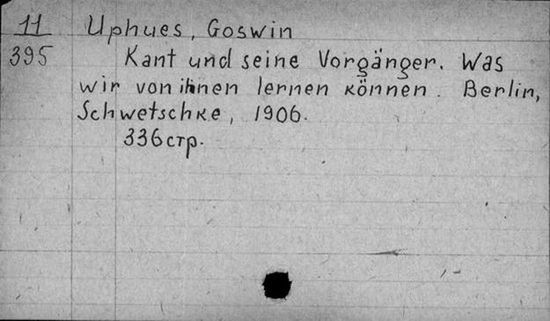 11
395
Uphues, Goswin
Kant und seine Vorgänger. Was
wir von ihnen lernen können. Berlin,
Schwetschke, 1906.
336 стр.